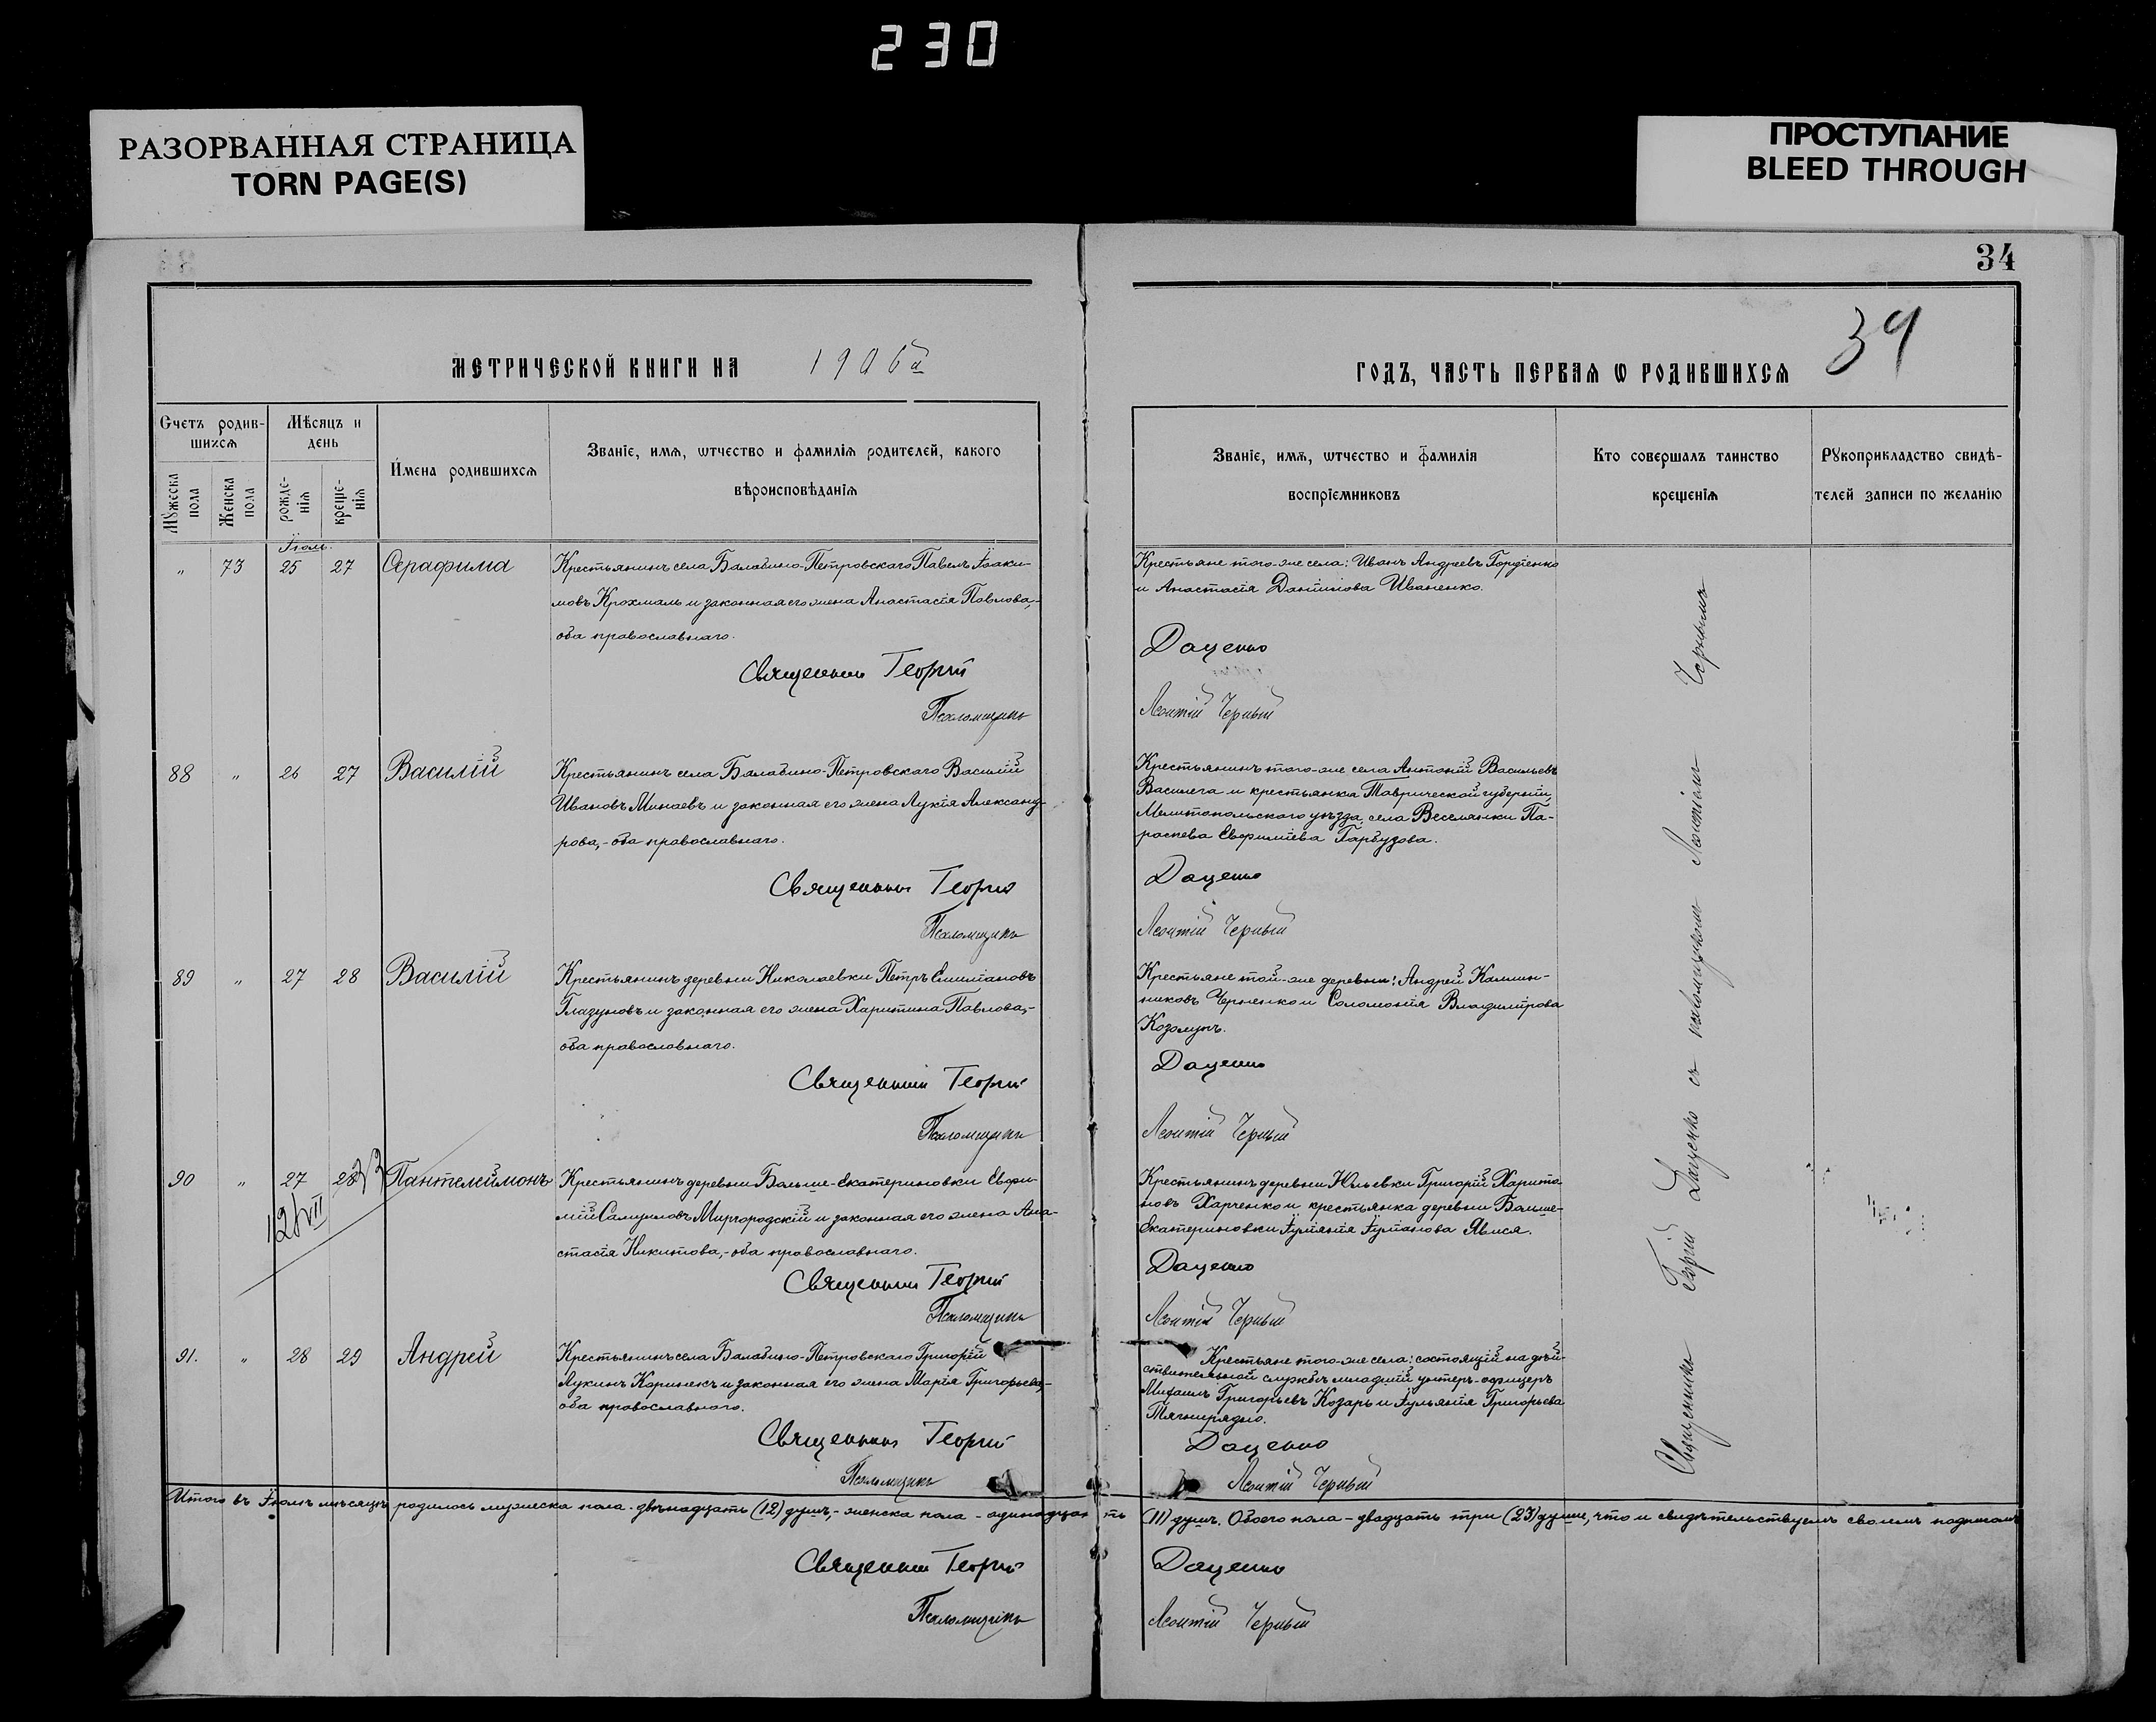 230
РАЗОРВАННАЯ СТРАНИЦА
TORN PAGE(S)
ПРОСТУПАНИЕ
BLEED THROUGH
34
34
МЕТРИЧЕСКОЙ КНИГИ НА 1906й
ГОДЪ, ЧАСТЬ ПЕРВАѦ Ѡ РОДИВШИХСѦ
Счетъ родив-
шихсѧ
Мѣсяцъ и
день
Мꙋжеска пола
Женска пола
рожде-
нїѧ
креще-
нїѧ
Имена родившихсѧ
Званїе, имѧ, ѡтчество и фамилїѧ родителей, какого
вѣроисповѣданїѧ
Званїе, имѧ, ѡтчество и фамилїѧ
воспрїемниковъ
Кто совершалъ таинство
крещенїѧ
Рꙋкоприкладство свидѣ-
телей записи по желанїю
Іюль.
" 73 25 27 Серафима
Крестьянинъ села Балабино-Петровскаго Павелъ Іоаки-
мовъ Крохмаль и законная его жена Анастасія Павлова,-
оба православнаго.
Священникъ Георгій
Псаломщикъ
Крестьяне того-же села: Иванъ Андреевъ Гордіенко
и Анастасія Даніилова Иваненко.
Даценко
Леонтій Черный
88 " 26 27 Василій
Крестьянинъ села Балабино-Петровскаго Василій
Ивановъ Минаевъ и законная его жена Лукія Александ-
рова,- оба православнаго.
Священникъ Георгій
Псаломщикъ
Крестьянинъ того-же села Антоній Васильевъ
Василега и крестьянка Таврической губерніи,
Мелитопольскаго уѣзда, села Веселянки Па-
раскева Евфиміева Гарбузова.
Даценко
Леонтій Черный
89 " 27 28 Василій
Крестьянинъ деревни Николаевки Петръ Емиліановъ
Глазуновъ и законная его жена Харитина Павлова,-
оба православнаго.
Священникъ Георгій
Псаломщикъ
Крестьяне той-же деревни: Андрей Каллин-
никовъ Черненко и Соломонія Владимірова
Козолупъ.
Даценко
Леонтій Черный
90 " 27 28 Пантелеймонъ
Крестьянинъ деревни Больше-Екатериновки Евфи-
мій Самуиловъ Миргородскій и законная его жена Ана-
стасія Никитова,- оба православнаго.
Священникъ Георгій
Псаломщикъ
Крестьянинъ деревни Юльевки Григорій Харито-
новъ Харченко и крестьянка деревни Больше-
Екатериновки Іуліанія Іуліанова Явися.
Даценко
Леонтій Черный
91. " 28 29 Андрей
Крестьянинъ села Балабино-Петровскаго Григорій
Лукинъ Коринекъ и законная его жена Марія Григорьева,-
оба православнаго.
Священникъ Георгій
Псаломщикъ
Крестьяне того-же села: состоящій на дѣй-
ствительной службѣ младшій унтеръ-офицеръ
Михаилъ Григорьевъ Козарь и Іульянія Григорьева
Тягнирядно.
Даценко
Леонтій Черный
Священникъ Георгій Даценко съ псаломщикомъ Леонтіемъ Чернымъ
Итого въ Іюлѣ мѣсяцѣ родилось мужеска пола - двѣнадцать (12) душъ, - женска пола - одинадцать (11) душъ. Обоего пола - двадцать три (23) души, что и свидѣтельствуемъ своимъ подписомъ
Священникъ Георгій Даценко
Псаломщикъ Леонтій Черный